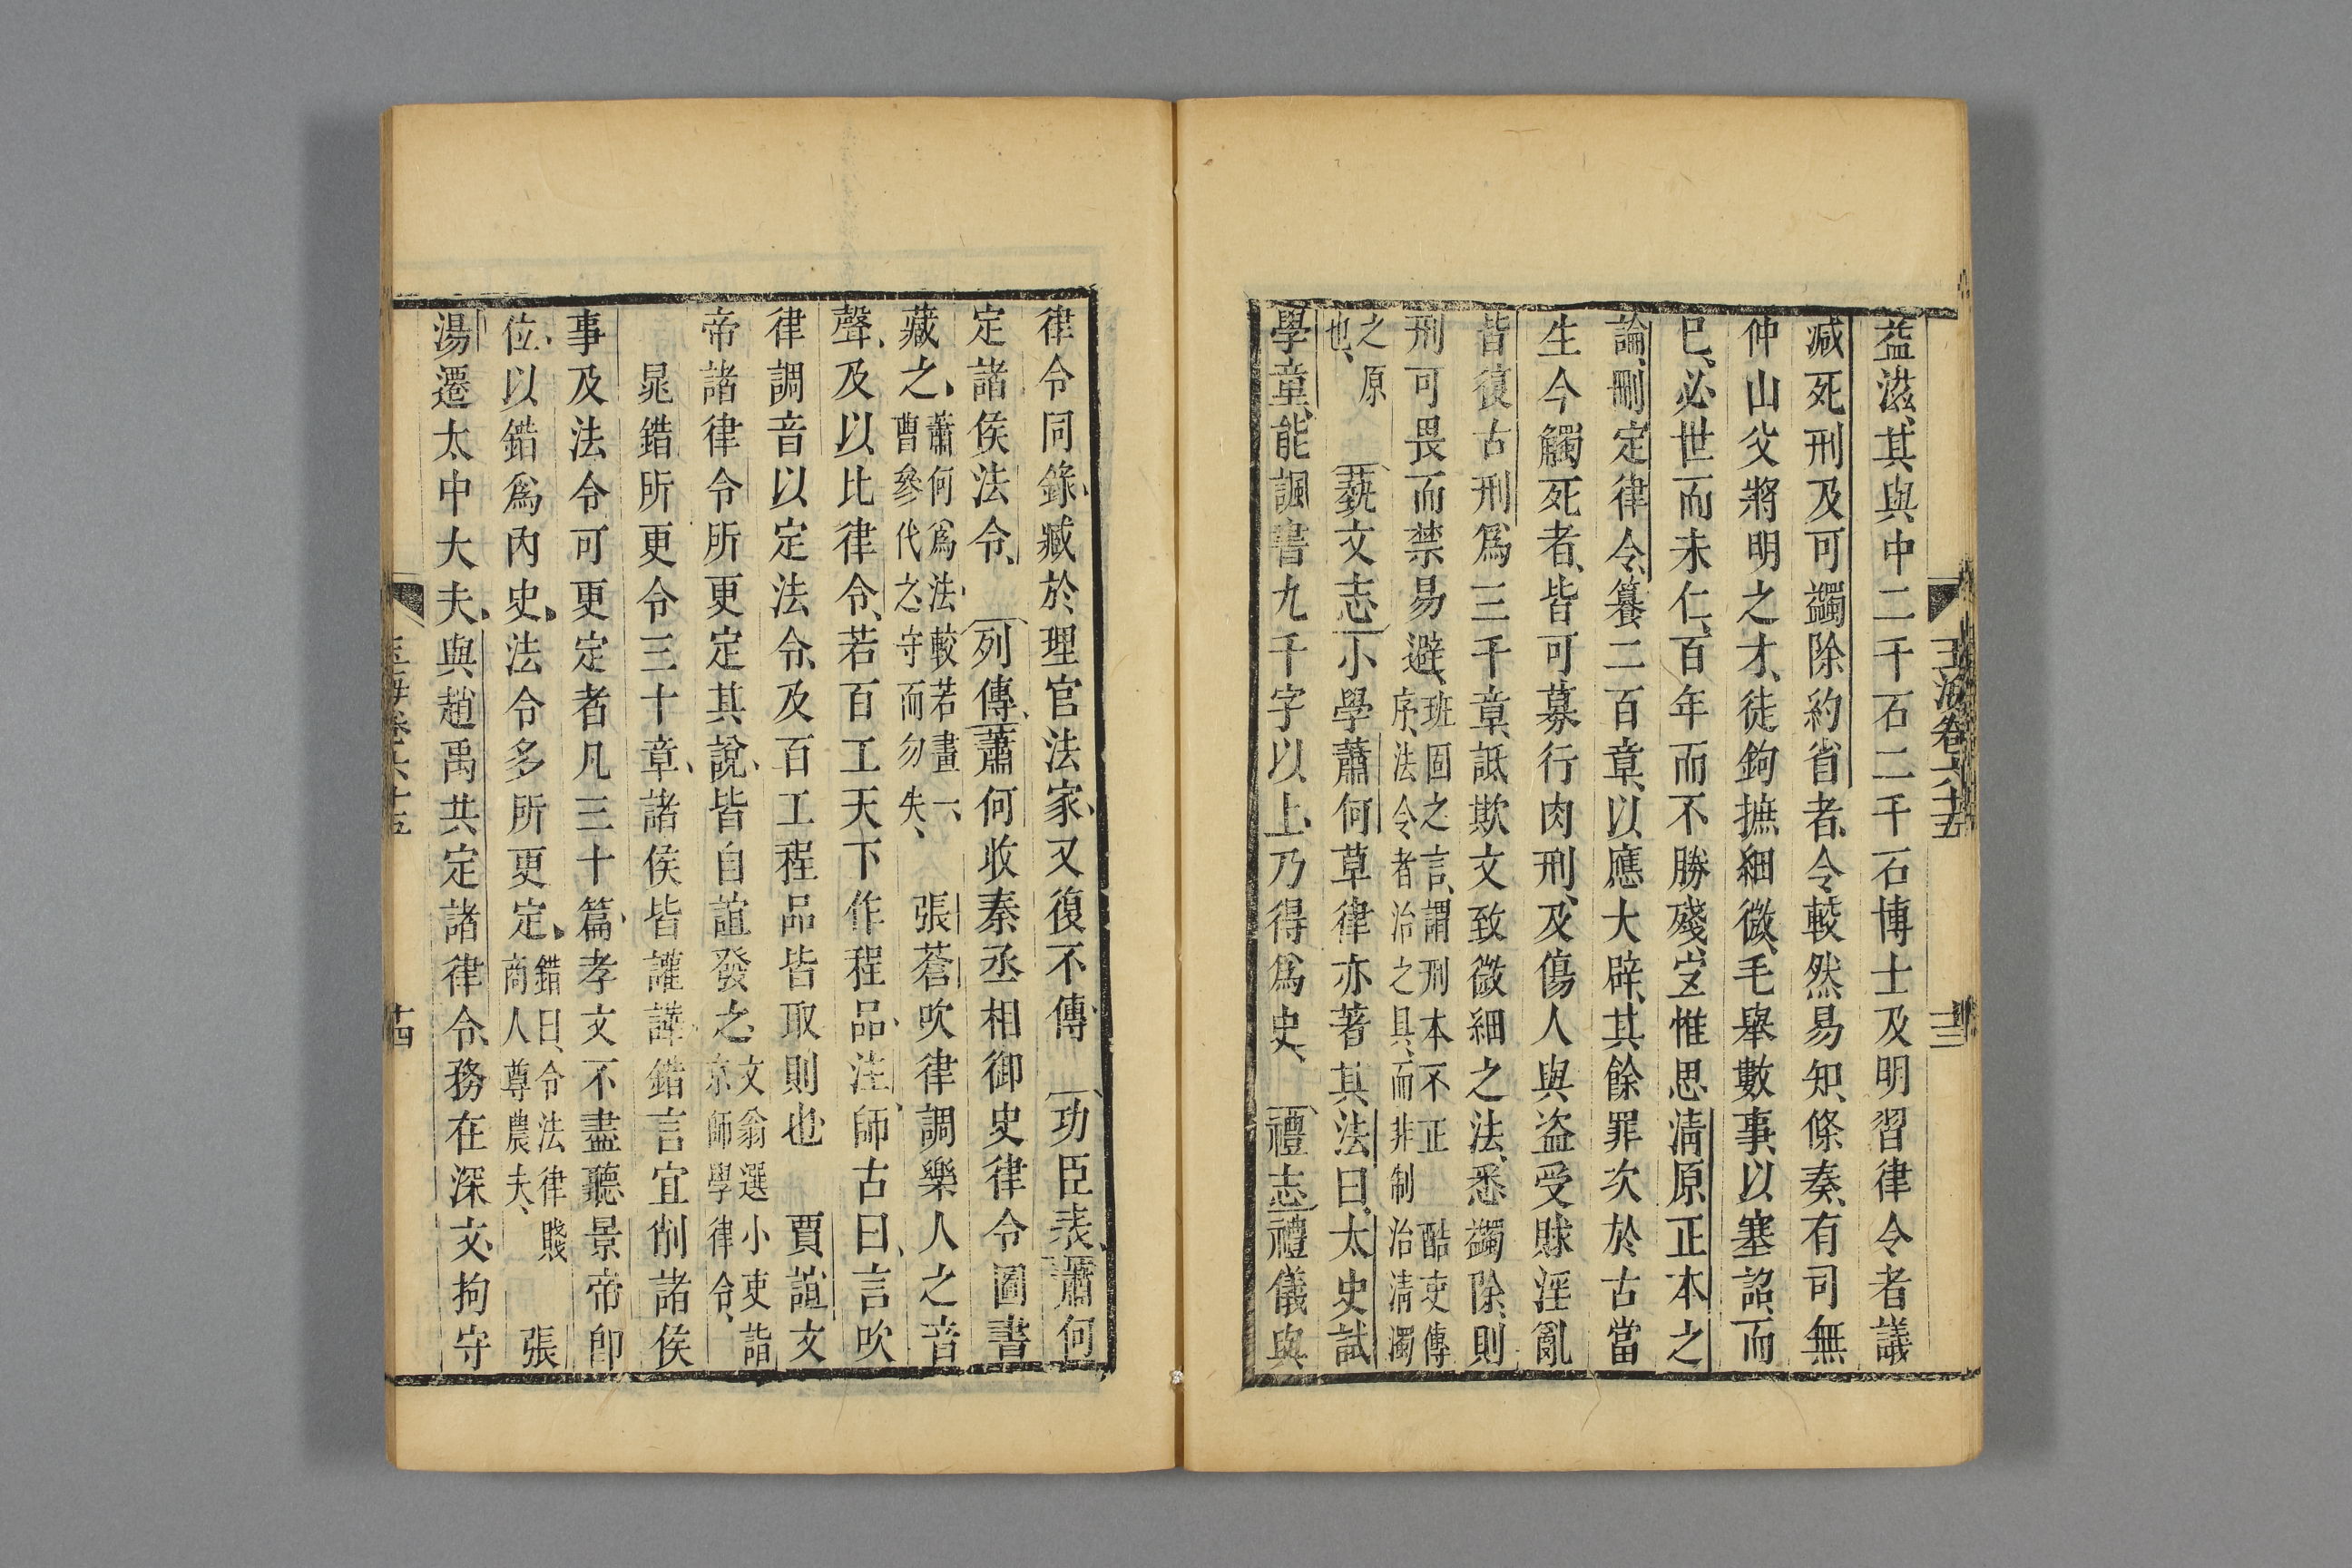 玉海卷六十五
十三
益滋、其與中二千石二千石博士及明習律令者議
減死刑及可蠲除約省者、令較然易知、條奏、有司無
仲山父將明之才、徒鉤摭細微、毛舉數事、以塞詔、而
巳、必世而未仁、百年而不勝殘、岦惟思清原正本之
論、刪定律令、籑二百章、以應大辟、其餘罪次於古當
生今觸死者、皆可募行肉刑、及傷人與盜受賕淫亂
皆復古刑爲三千章、詆欺文致微細之法、悉蠲除、則
刑可畏而禁易避、班固之言、謂刑本不正　酷吏傳
序、法令者治之具、而非制治清濁
之原
也、　藝文志小學蕭何草律亦著其法曰、太史試
學童、能諷書九千字以上、乃得爲史、　禮志禮儀與
律令同錄、臧於理官法家、又復不傳　功臣表、蕭何
定諸侯法令、　列傳、蕭何收秦丞相御史律令圖書
藏之、蕭何爲法、較若畫一、
曹參代之、守而勿失、　張蒼吹律調樂人之音
聲、及以比律令、若百工天下作程品、注、師古曰、言吹
律調音以定法令、及百工程品皆取則也　賈誼文
帝諸律令所更定其說、皆自誼發之、文翁選小吏詣
京師學律令、
晁錯所更令三十章、諸侯皆讙譁、錯言宜削諸侯
事及法令可更定者凡三十篇、孝文不盡聽景帝卽
位、以錯爲內史、法令多所更定、錯曰、令法律賤
商人尊農夫、　張
湯遷太中大夫、與趙禹共定諸律令、務在深文、拘守
玉海卷六十五
十四